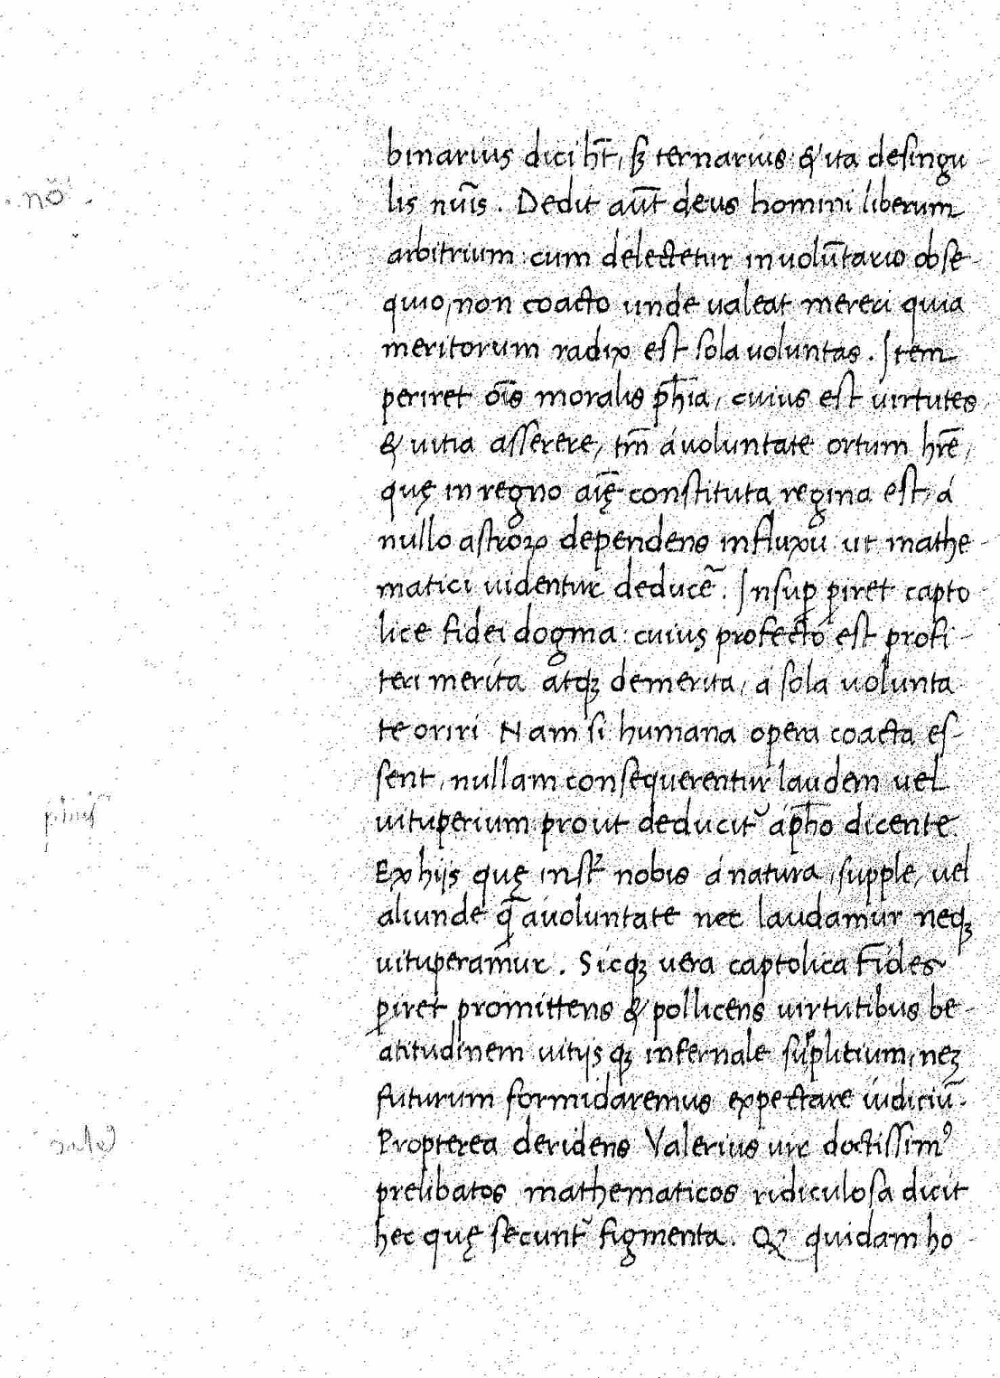 binarius dici hr̄t, sꝫ ternarius: & ita desingu-
. nō .
lis nūis. Dedit aūt deus homini liberum
arbitrium: cum delectetur in volūtario obse-
quio, non coacto unde valeat mereri quia
meritorum radix est sola voluntas. Item
periret oīs moralis ph̄ia, cuius est virtutes
& vitia asserere, tm̄ á voluntate ortum hr̄e,
quę in regno aīę constituta regina est, á
nullo astroꝝ dependens influxū ut mathe-
matici videntur deducē. Insuꝑ ꝑiret capto
lice fidei dogma: cuius profecto est profi-
teri merita atqꝫ demerita, á sola volunta
te oriri Nam si humana opera coacta es-
sent, nullam consequerentur laudem vel
vituperium prout deducit᷑ áph̄o dicente.
Ex hijs quę inst᷑ nobis á natura, supple, vel
aliunde q̄̃ ávoluntate nec laudamur neqꝫ
vituperamur. Sicqꝫ vera captolica Fides
ꝑiret promittens & pollicens virtutibus be-
atitudinem vitijs qꝫ infernale supplitium, neꝫ
futurum formidaremus expectare iudiciū.
Propterea deridens Valerius vir doctissimꝰ
prelibatos mathematicos ridiculosa dicit
hec quę secunt᷑ figmenta. Qꝫ quidam ho